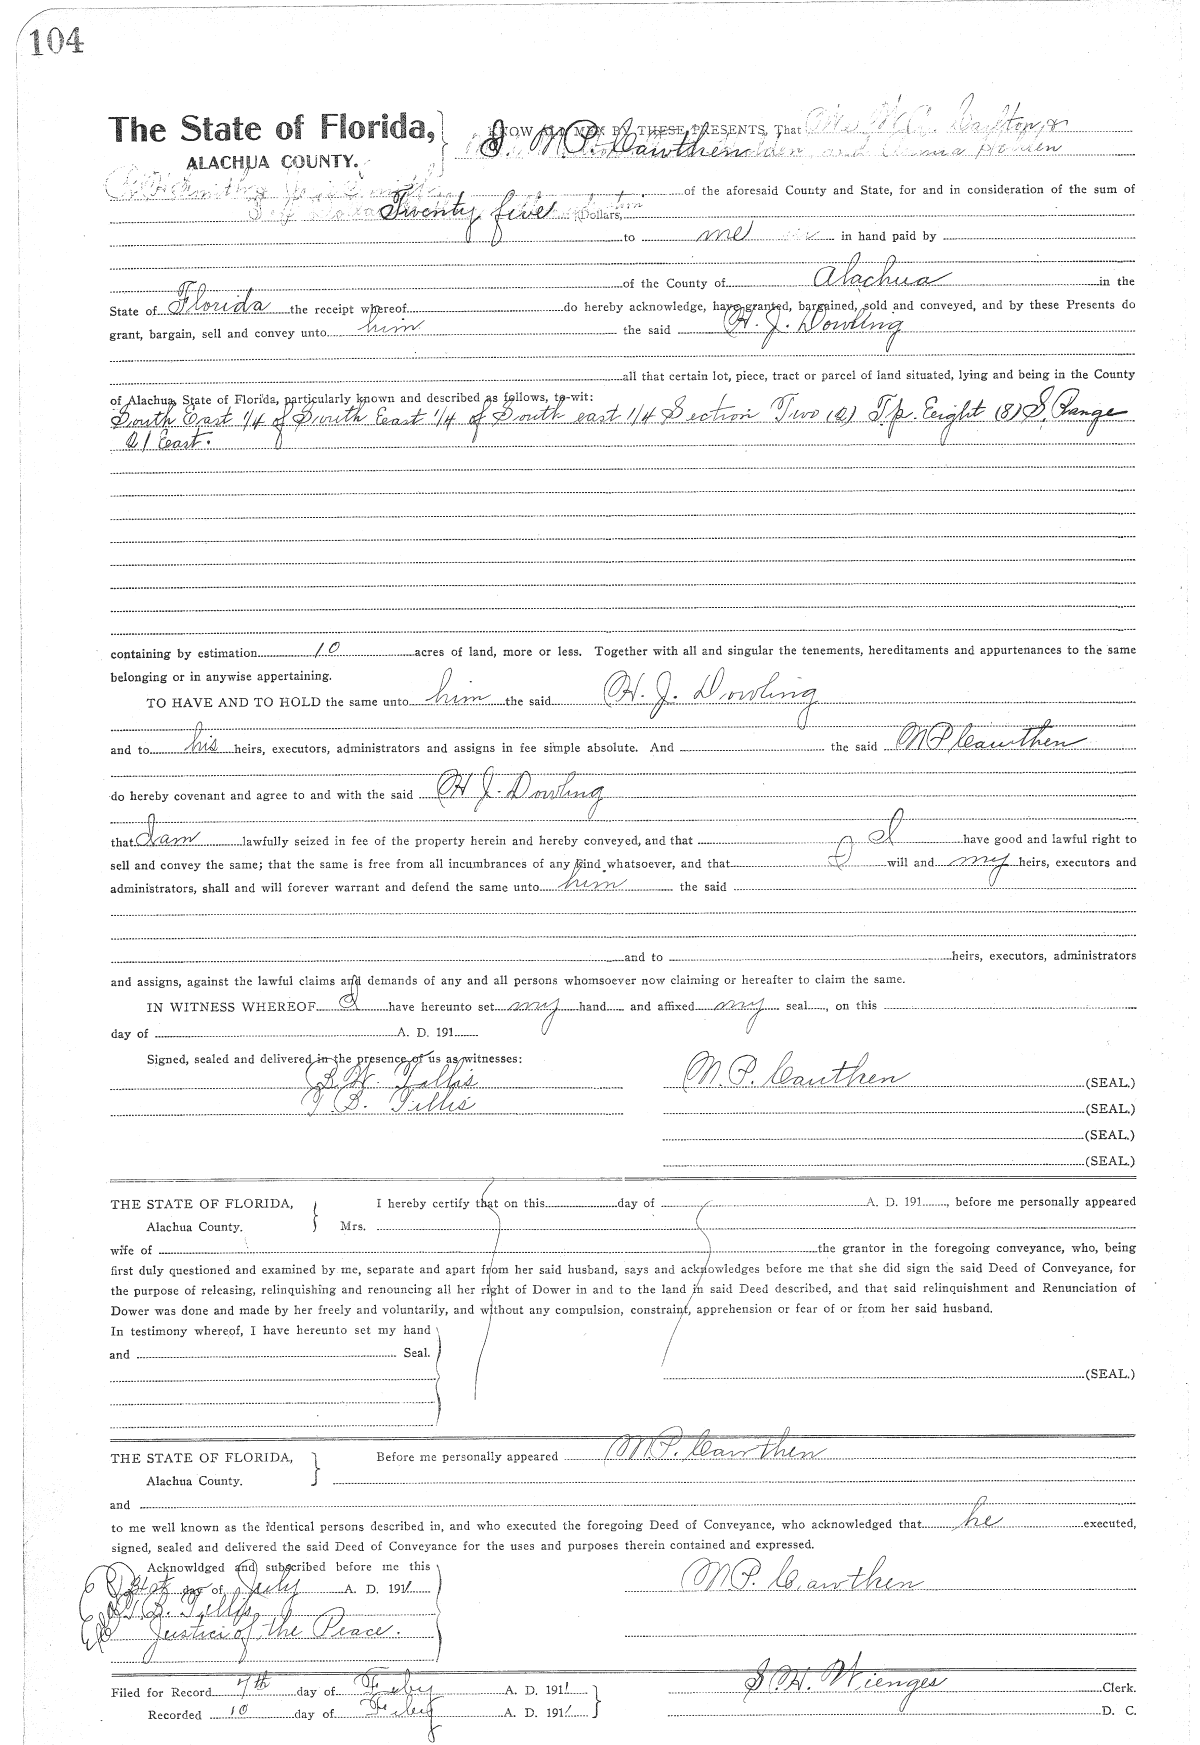 104
The State of Florida, KNOW ALL MEN BY THESE PRESENTS, That
ALACHUA COUNTY. I, M. P. Cawthen
of the aforesaid County and State, for and in consideration of the sum of
Twenty five Dollars,
to me in hand paid by
of the County of Alachua in the
State of Florida the receipt whereof do hereby acknowledge, have granted, bargained, sold and conveyed, and by these Presents do
grant, bargain, sell and convey unto him the said H. J. Dowling
all that certain lot, piece, tract or parcel of land situated, lying and being in the County
of Alachua, State of Florida, particularly known and described as follows, to-wit:
South East 1/4 of South East 1/4 of South east 1/4 Section Two (2) T.p. Eeight (8) S, Range
21 East.
containing by estimation 10 acres of land, more or less. Together with all and singular the tenements, hereditaments and appurtenances to the same
belonging or in anywise appertaining.
TO HAVE AND TO HOLD the same unto him the said H. J. Dowling
and to his heirs, executors, administrators and assigns in fee simple absolute. And the said M P Cawthen
do hereby covenant and agree to and with the said H J. Dowling
that I am lawfully seized in fee of the property herein and hereby conveyed, and that I have good and lawful right to
sell and convey the same; that the same is free from all incumbrances of any kind whatsoever, and that I will and my heirs, executors and
administrators, shall and will forever warrant and defend the same unto him the said
and to heirs, executors, administrators
and assigns, against the lawful claims and demands of any and all persons whomsoever now claiming or hereafter to claim the same.
IN WITNESS WHEREOF I have hereunto set my hand and affixed my seal, on this
day of A. D. 191
Signed, sealed and delivered in the presence of us as witnesses:
B. W. Tillis M. P. Cauthen (SEAL.)
T. B. Tillis (SEAL.)
(SEAL.)
(SEAL.)
THE STATE OF FLORIDA, I hereby certify that on this day of A. D. 191, before me personally appeared
Alachua County. Mrs.
wife of the grantor in the foregoing conveyance, who, being
first duly questioned and examined by me, separate and apart from her said husband, says and acknowledges before me that she did sign the said Deed of Conveyance, for
the purpose of releasing, relinquishing and renouncing all her right of Dower in and to the land in said Deed described, and that said relinquishment and Renunciation of
Dower was done and made by her freely and voluntarily, and without any compulsion, constraint, apprehension or fear of or from her said husband.
In testimony whereof, I have hereunto set my hand
and Seal.
(SEAL.)
THE STATE OF FLORIDA, Before me personally appeared M P. Cawthen
Alachua County.
and
to me well known as the identical persons described in, and who executed the foregoing Deed of Conveyance, who acknowledged that he executed,
signed, sealed and delivered the said Deed of Conveyance for the uses and purposes therein contained and expressed.
Acknowldged and subscribed before me this
31st day of July A. D. 191 M P. Cawthen
T. B. Tillis
Justice of the Peace.
S. H. Wienges
Filed for Record 7th day of Feby A. D. 1911 Clerk.
Recorded 10 day of Feby A. D. 1911 D. C.